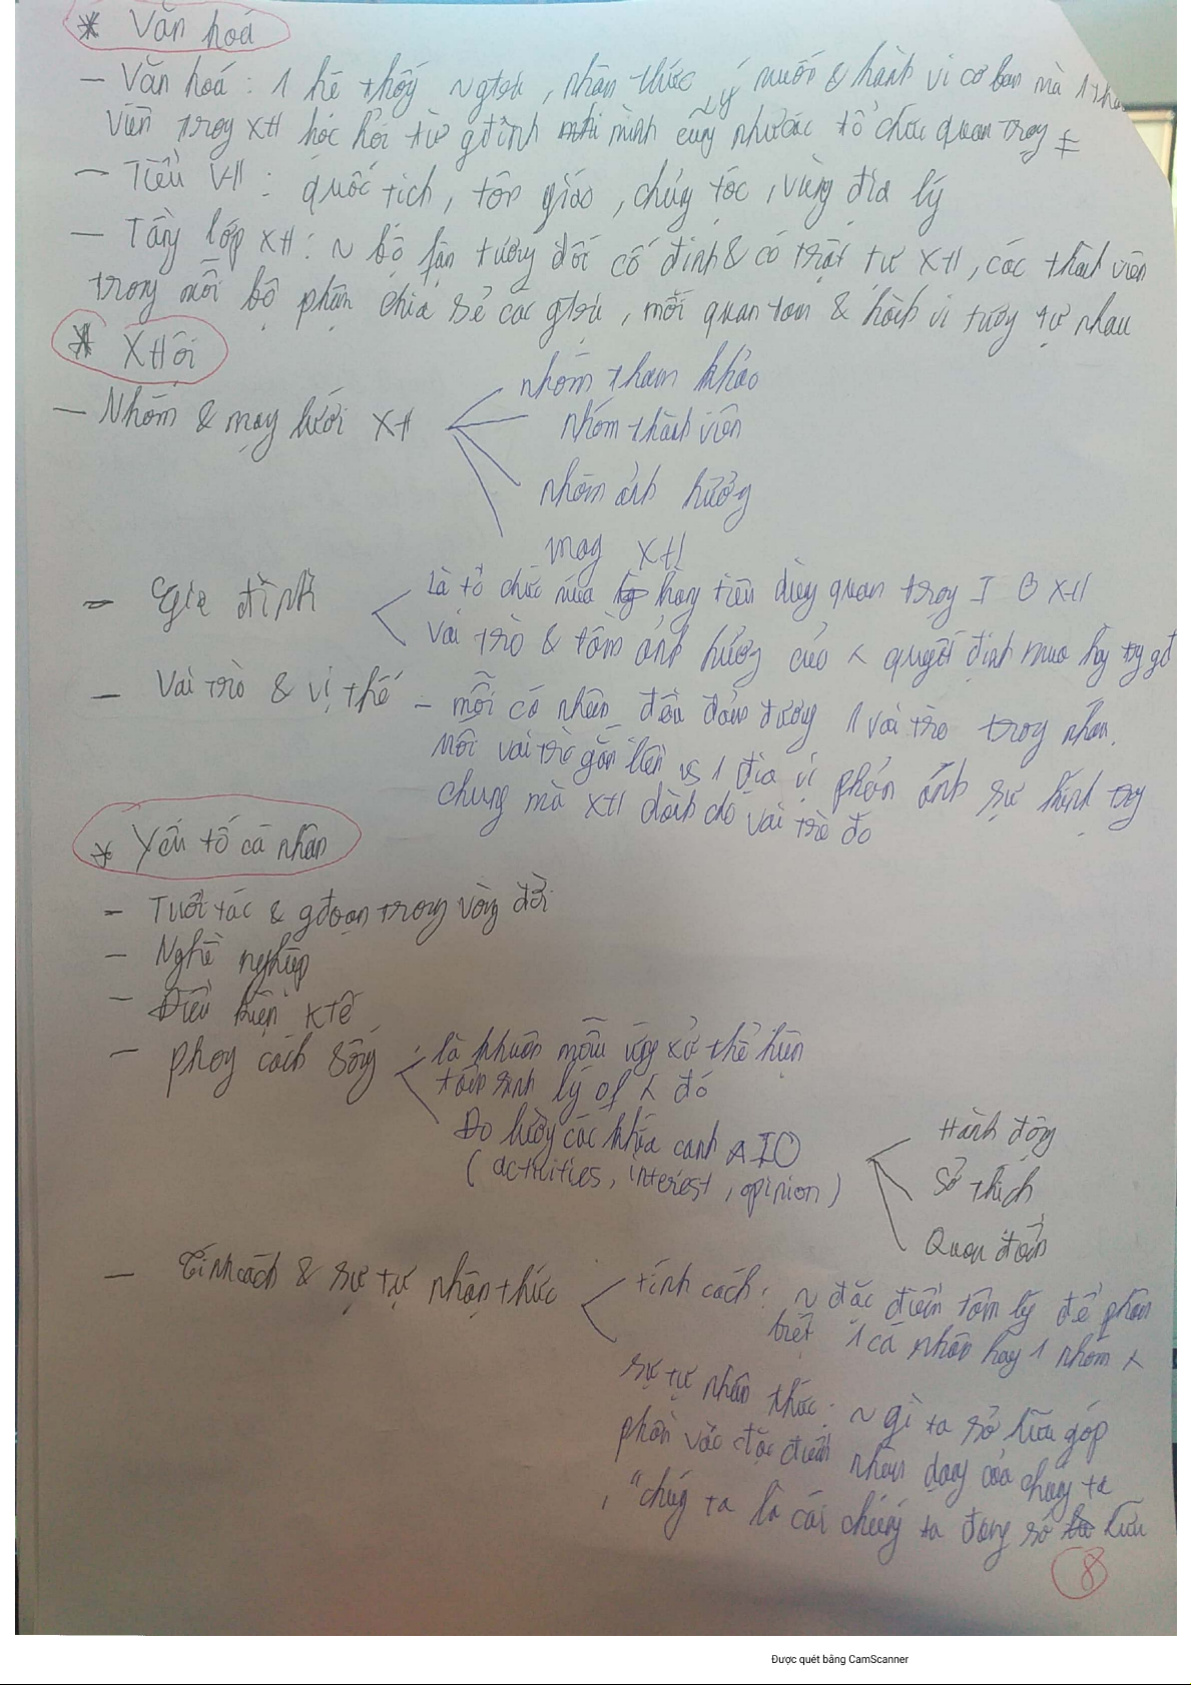 * Văn hoá
- Văn hoá : 1 hệ thống ~ gtrị, nhận thức, ý muốn & hành vi cơ bản mà 1 thà
viên trog XH học hỏi từ gđình mình cũng như các tổ chức quan trọg ≠
- Tiểu VH : quốc tịch, tôn giáo, chủng tộc, vùng địa lý
- Tầng lớp XH : ~ bộ fận tương đối cố định & có trật tự XH, các thành viên
trong mỗi bộ phận chia sẻ các gtrị, mối quan tâm & hành vi tương tự nhau
* XHội
- Nhóm & mạng lưới XH
nhóm tham khảo
nhóm thành viên
nhóm ảnh hưởng
mạg XH
- Gia đình
Là tổ chức mua hàng tiêu dùng quan trọng I O XH
Vai trò & tầm ảnh hưởng của < quyết định mua hg trg gđ
- Vai trò & vị thế - mỗi cá nhân đều đảm đương 1 vai trò trong nhóm.
Mỗi vai trò gắn liền vs 1 địa vị phản ánh sự kính trg
chung mà XH dành cho vai trò đó
* Yếu tố cá nhân
- Tuổi tác & gđoạn trong vòng đời
- Nghề nghiệp
- Điều kiện Ktế
- Phog cách sống : là khuôn mẫu ứng xử thể hiện
tâm sinh lý of < đó
Đo lường các khía cạnh AIO
(activities, interest, opinion)
Hành động
Sở thích
Quan điểm
- Tính cách & sự tự nhận thức
tính cách : ~ đặc điểm tâm lý để phân
biệt 1 cá nhân hay 1 nhóm <
sự tự nhận thức : ~ gì ta sở hữu góp
phần vào đặc điểm nhận dạng của chúng ta
, "chúng ta là cái chúng ta đang sở hữu
8
Được quét bằng CamScanner